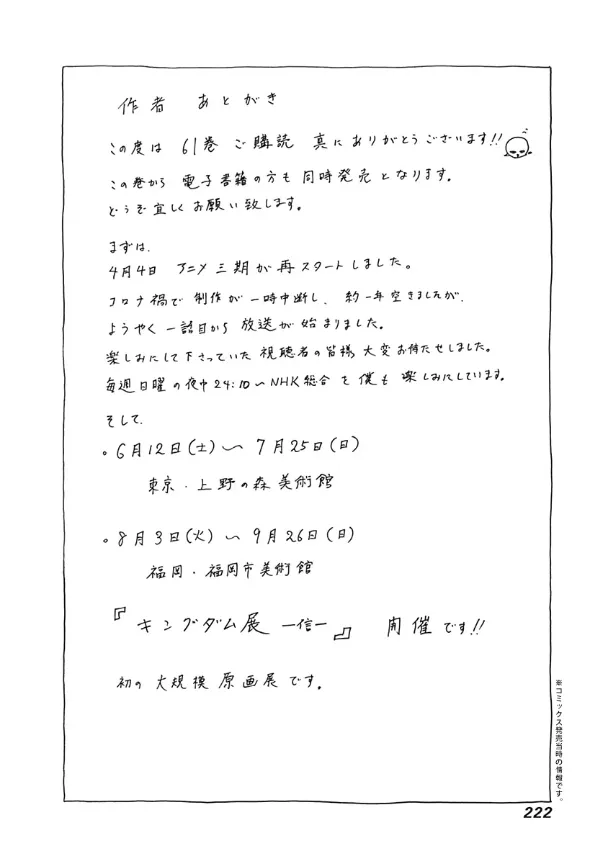 作者 あとがき
この度は 61巻 ご購読 真にありがとうございます!!
この巻から 電子書籍の方も同時発売となります。
どうぞ宜しくお願い致します。
まずは、
4月4日 アニメ三期が再スタートしました。
コロナ禍で制作が一時中断し、約一年空きましたが、
ようやく一話目から放送が始まりました。
楽しみにして下さっていた視聴者の皆様大変お待たせしました。
毎週日曜の夜中24:10〜NHK総合を僕も楽しみにしています。
そして、
。6月12日(土)〜7月25日(日)
東京・上野の森美術館
。8月3日(火)〜9月26日(日)
福岡・福岡市美術館
『キングダム展 ー信ー』 開催です!!
初の大規模原画展です。
※コミックス発売当時の情報です。
222